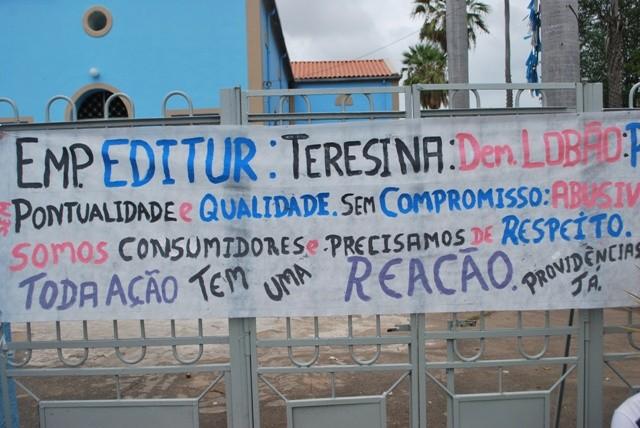 EMP. EDITUR: TERESINA: Dem. LOBÃO: P
PONTUALIDADE e QUALIDADE. SEM COMPROMISSO: ABUSIV
SOMOS CONSUMIDORES e PRECISAMOS DE RESPEITO.
TODA AÇÃO TEM UMA REACÃO. PROVIDÊNCIAS JÁ.